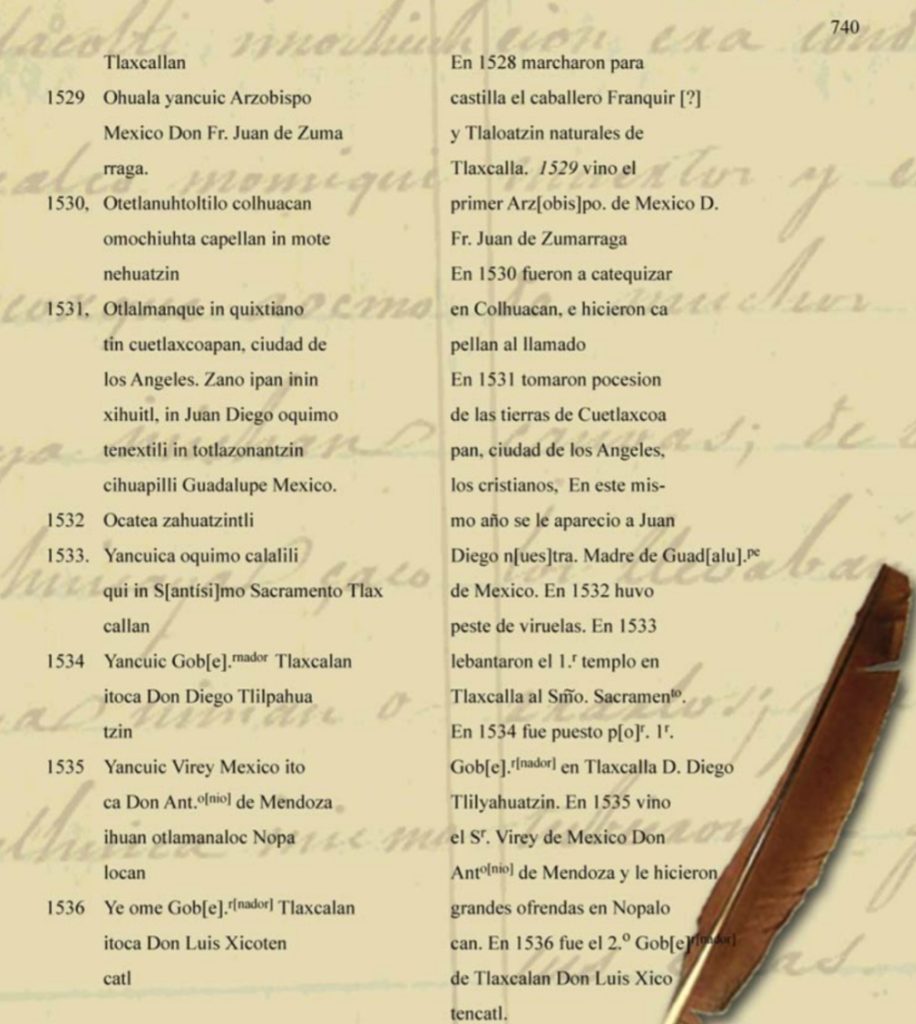 740
Tlaxcallan
1529 Ohuala yancuic Arzobispo
Mexico Don Fr. Juan de Zuma
rraga.
1530, Otetlanuhtoltilo colhuacan
omochiuhta capellan in mote
nehuatzin
1531, Otlalmanque in quixtiano
tin cuetlaxcoapan, ciudad de
los Angeles. Zano ipan inin
xihuitl, in Juan Diego oquimo
tenextili in totlazonantzin
cihuapilli Guadalupe Mexico.
1532 Ocatea zahuatzintli
1533. Yancuica oquimo calalili
qui in S[antísi]mo Sacramento Tlax
callan
1534 Yancuic Gob[e].rnador Tlaxcalan
itoca Don Diego Tlilpahua
tzin
1535 Yancuic Virey Mexico ito
ca Don Ant.o[nio] de Mendoza
ihuan otlamanaloc Nopa
locan
1536 Ye ome Gob[e].r[nador] Tlaxcalan
itoca Don Luis Xicoten
catl
En 1528 marcharon para
castilla el caballero Franquir [?]
y Tlaloatzin naturales de
Tlaxcalla. 1529 vino el
primer Arz[obis]po. de Mexico D.
Fr. Juan de Zumarraga
En 1530 fueron a catequizar
en Colhuacan, e hicieron ca
pellan al llamado
En 1531 tomaron pocesion
de las tierras de Cuetlaxcoa
pan, ciudad de los Angeles,
los cristianos, En este mis-
mo año se le aparecio a Juan
Diego n[ues]tra. Madre de Guad[alu].pe
de Mexico. En 1532 huvo
peste de viruelas. En 1533
lebantaron el 1.r templo en
Tlaxcalla al Sm̃o. Sacramento.
En 1534 fue puesto p[o]r. 1r.
Gob[e].r[nador] en Tlaxcalla D. Diego
Tlilyahuatzin. En 1535 vino
el Sr. Virey de Mexico Don
Anto[nio] de Mendoza y le hicieron
grandes ofrendas en Nopalo
can. En 1536 fue el 2.º Gob[e]r[nador]
de Tlaxcalan Don Luis Xico
tencatl.